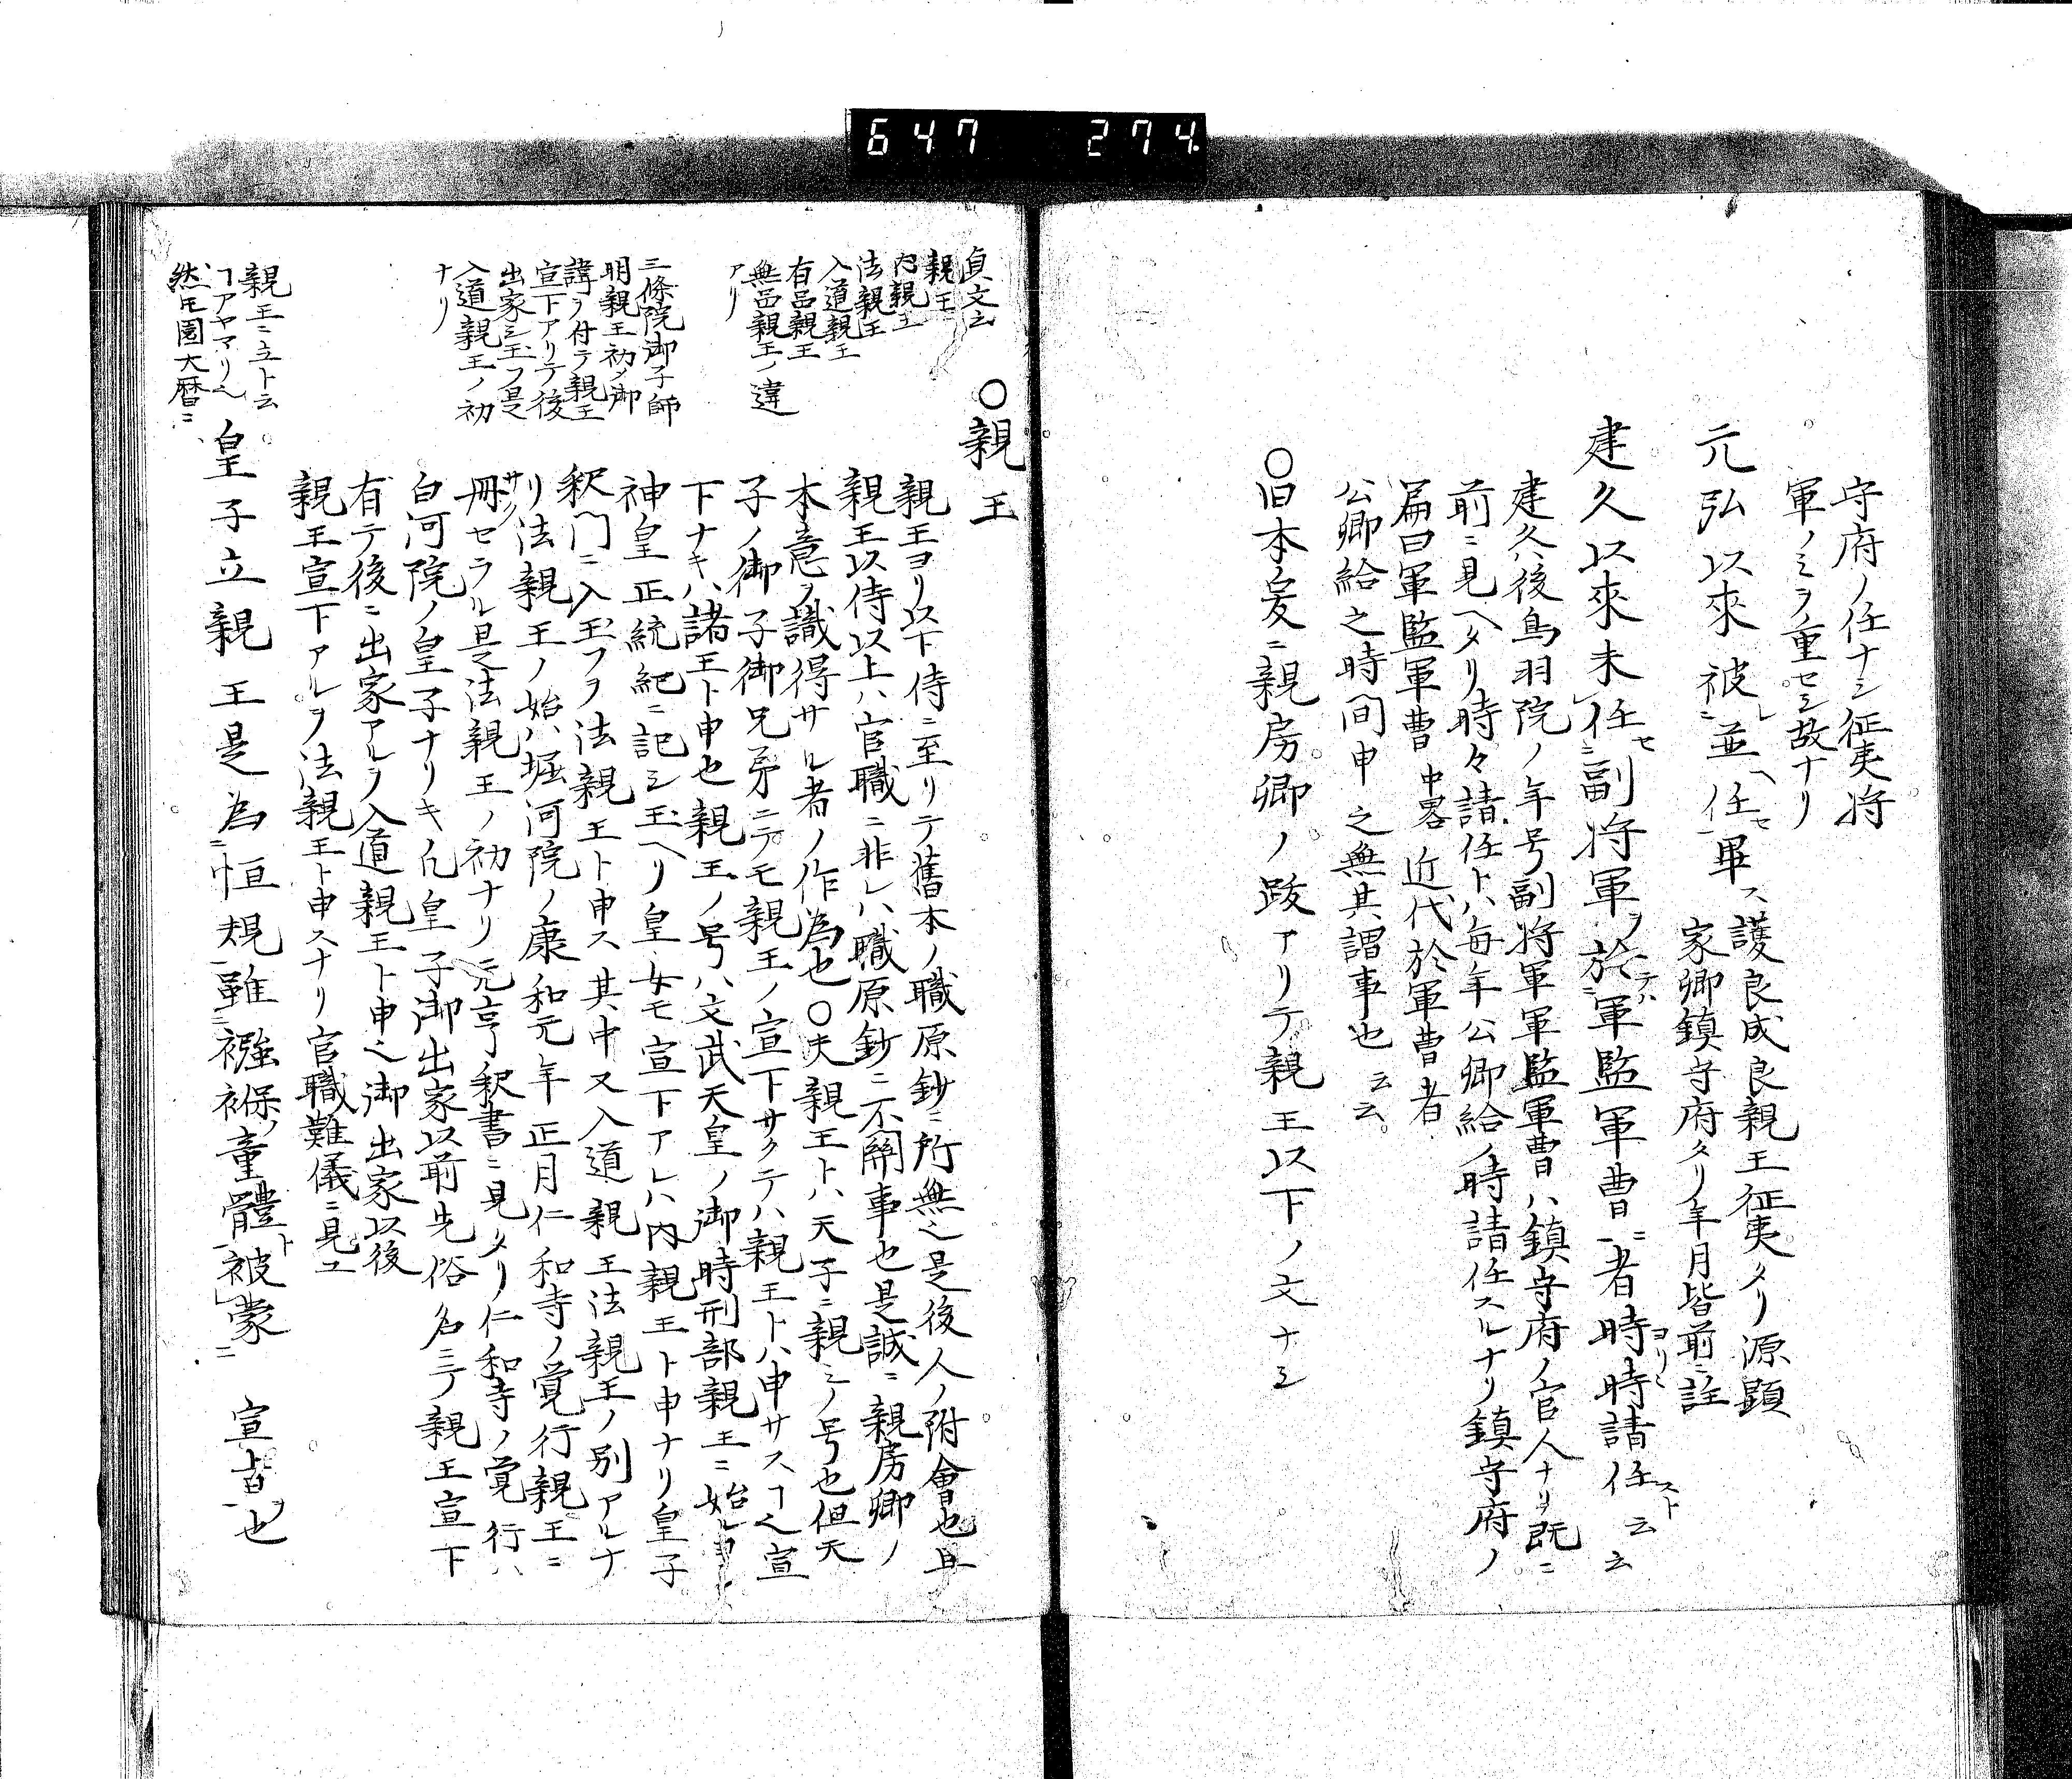 647 274
守府ノ任ナシ征夷将
軍ノミヲ重セシ故ナリ
元弘以來被レ並ヘ任セ畢ス
護良成良親王征夷タリ源顕
家卿鎮守府タリ年月皆前ニ註
建久以來未レ任セ副将軍ヲ於テハ軍監軍曹ニ者時ヨリ時請任スト云云
建久ハ後鳥羽院ノ年号副将軍軍監軍曹ハ鎮守府ノ官人ナリ既ニ
前ニ見ヘタリ時々請任トハ毎年公卿給ノ時請任スルナリ鎮守府ノ
篇曰軍監軍曹 中畧 近代於軍曹者
公卿給之時間申之無其謂事也云云
〇旧本爰ニ親房卿ノ跋アリテ親王以下ノ文ナシ
貞文云
親王
内親王
法親王
入道親王
有品親王
無品親王ノ違
アリ
三條院御子師
明親王初ノ御
諱ヲ付テ親王
宣下アリテ後
出家シ玉フ是
入道親王ノ初
ナリ
〇親王
親王ヨリ以下侍ニ至リテ舊本ノ職原鈔ニ所無之是後人ノ附會也且
親王以侍以上ハ官職ニ非レハ職原鈔ニ不關事也是誠ニ親房卿ノ
本意ヲ識得サル者ノ作為也〇夫親王トハ天子ニ親シノ号也但天
子ノ御子御兄弟ニテモ親王ノ宣下サクテハ親王トハ申サスヿ也宣
下ナキハ諸王ト申也親王ノ号ハ文武天皇ノ御時刑部親王ニ始ル
神皇正統紀ニ記シ玉ヘリ皇女モ宣下アレハ内親王ト申ナリ皇子
釈門ニ入玉フヲ法親王ト申ス其中又入道親王法親王ノ別アルナ
リ法親王ノ始ハ堀河院ノ康和元年正月仁和寺ノ覚行親王ニ
冊セラル是法親王ノ初ナリ元亨釈書ニ見タリ仁和寺ノ覚行ハ
白河院ノ皇子ナリキ凡皇子御出家以前先俗名ニテ親王宣下
有テ後ニ出家アルヲ入道親王ト申也御出家以後
親王宣下アルヲ法親王ト申スナリ官職難儀ニ見ユ
親王ニ立ト云
ヿアヤマリ也
然𪜈園太暦ニ
皇子立親王是為恒規雖襁褓ノ童體ト被レ蒙宣旨ヲ也